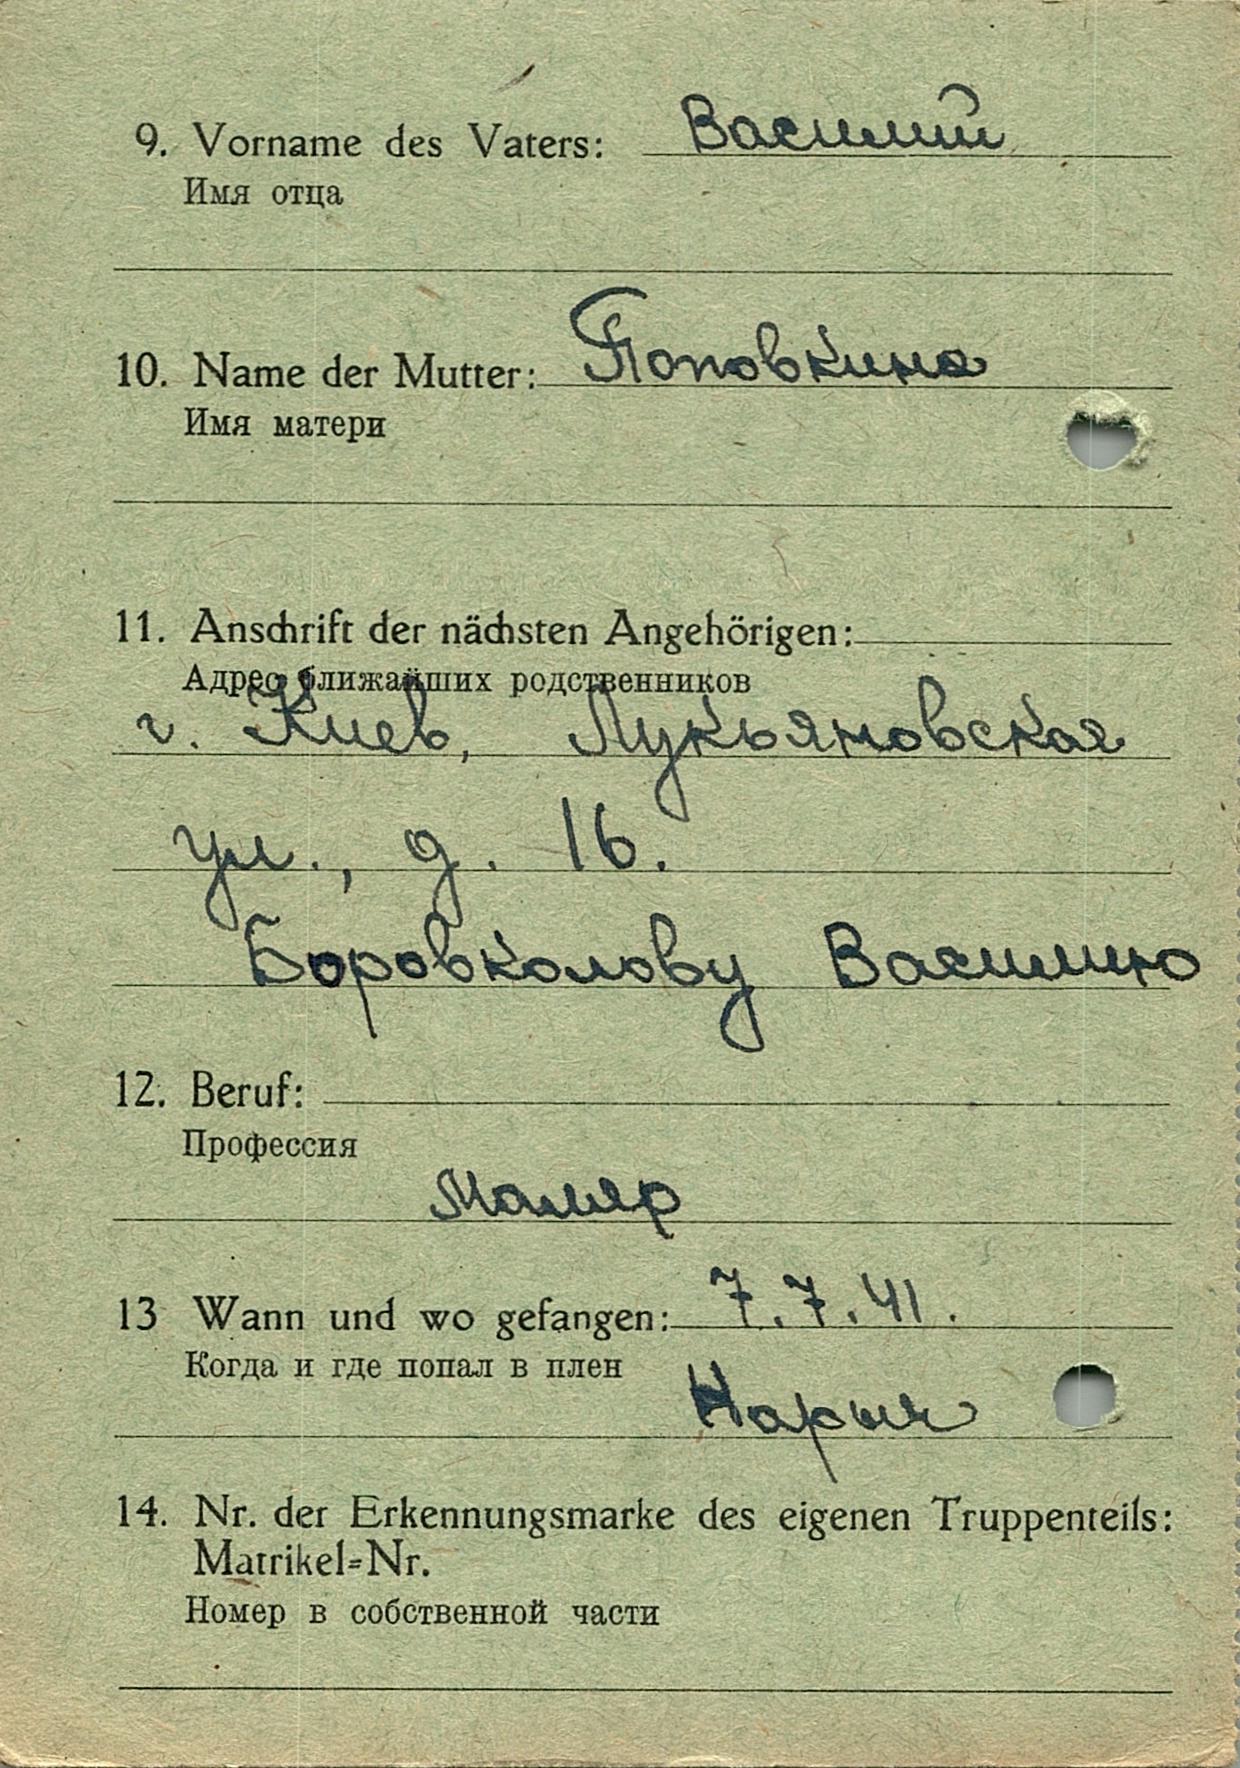 9. Vorname des Vaters: Василий
Имя отца
10. Name der Mutter: Поповкина
Имя матери
11. Anschrift der nächsten Angehörigen:
Адрес ближайших родственников
г. Киев, Лукьяновская
ул., д. 16.
Боровколову Василию
12. Beruf:
Профессия
Маляр
13 Wann und wo gefangen: 7.7.41.
Когда и где попал в плен
14. Nr. der Erkennungsmarke des eigenen Truppenteils:
Matrikel=Nr.
Номер в собственной части